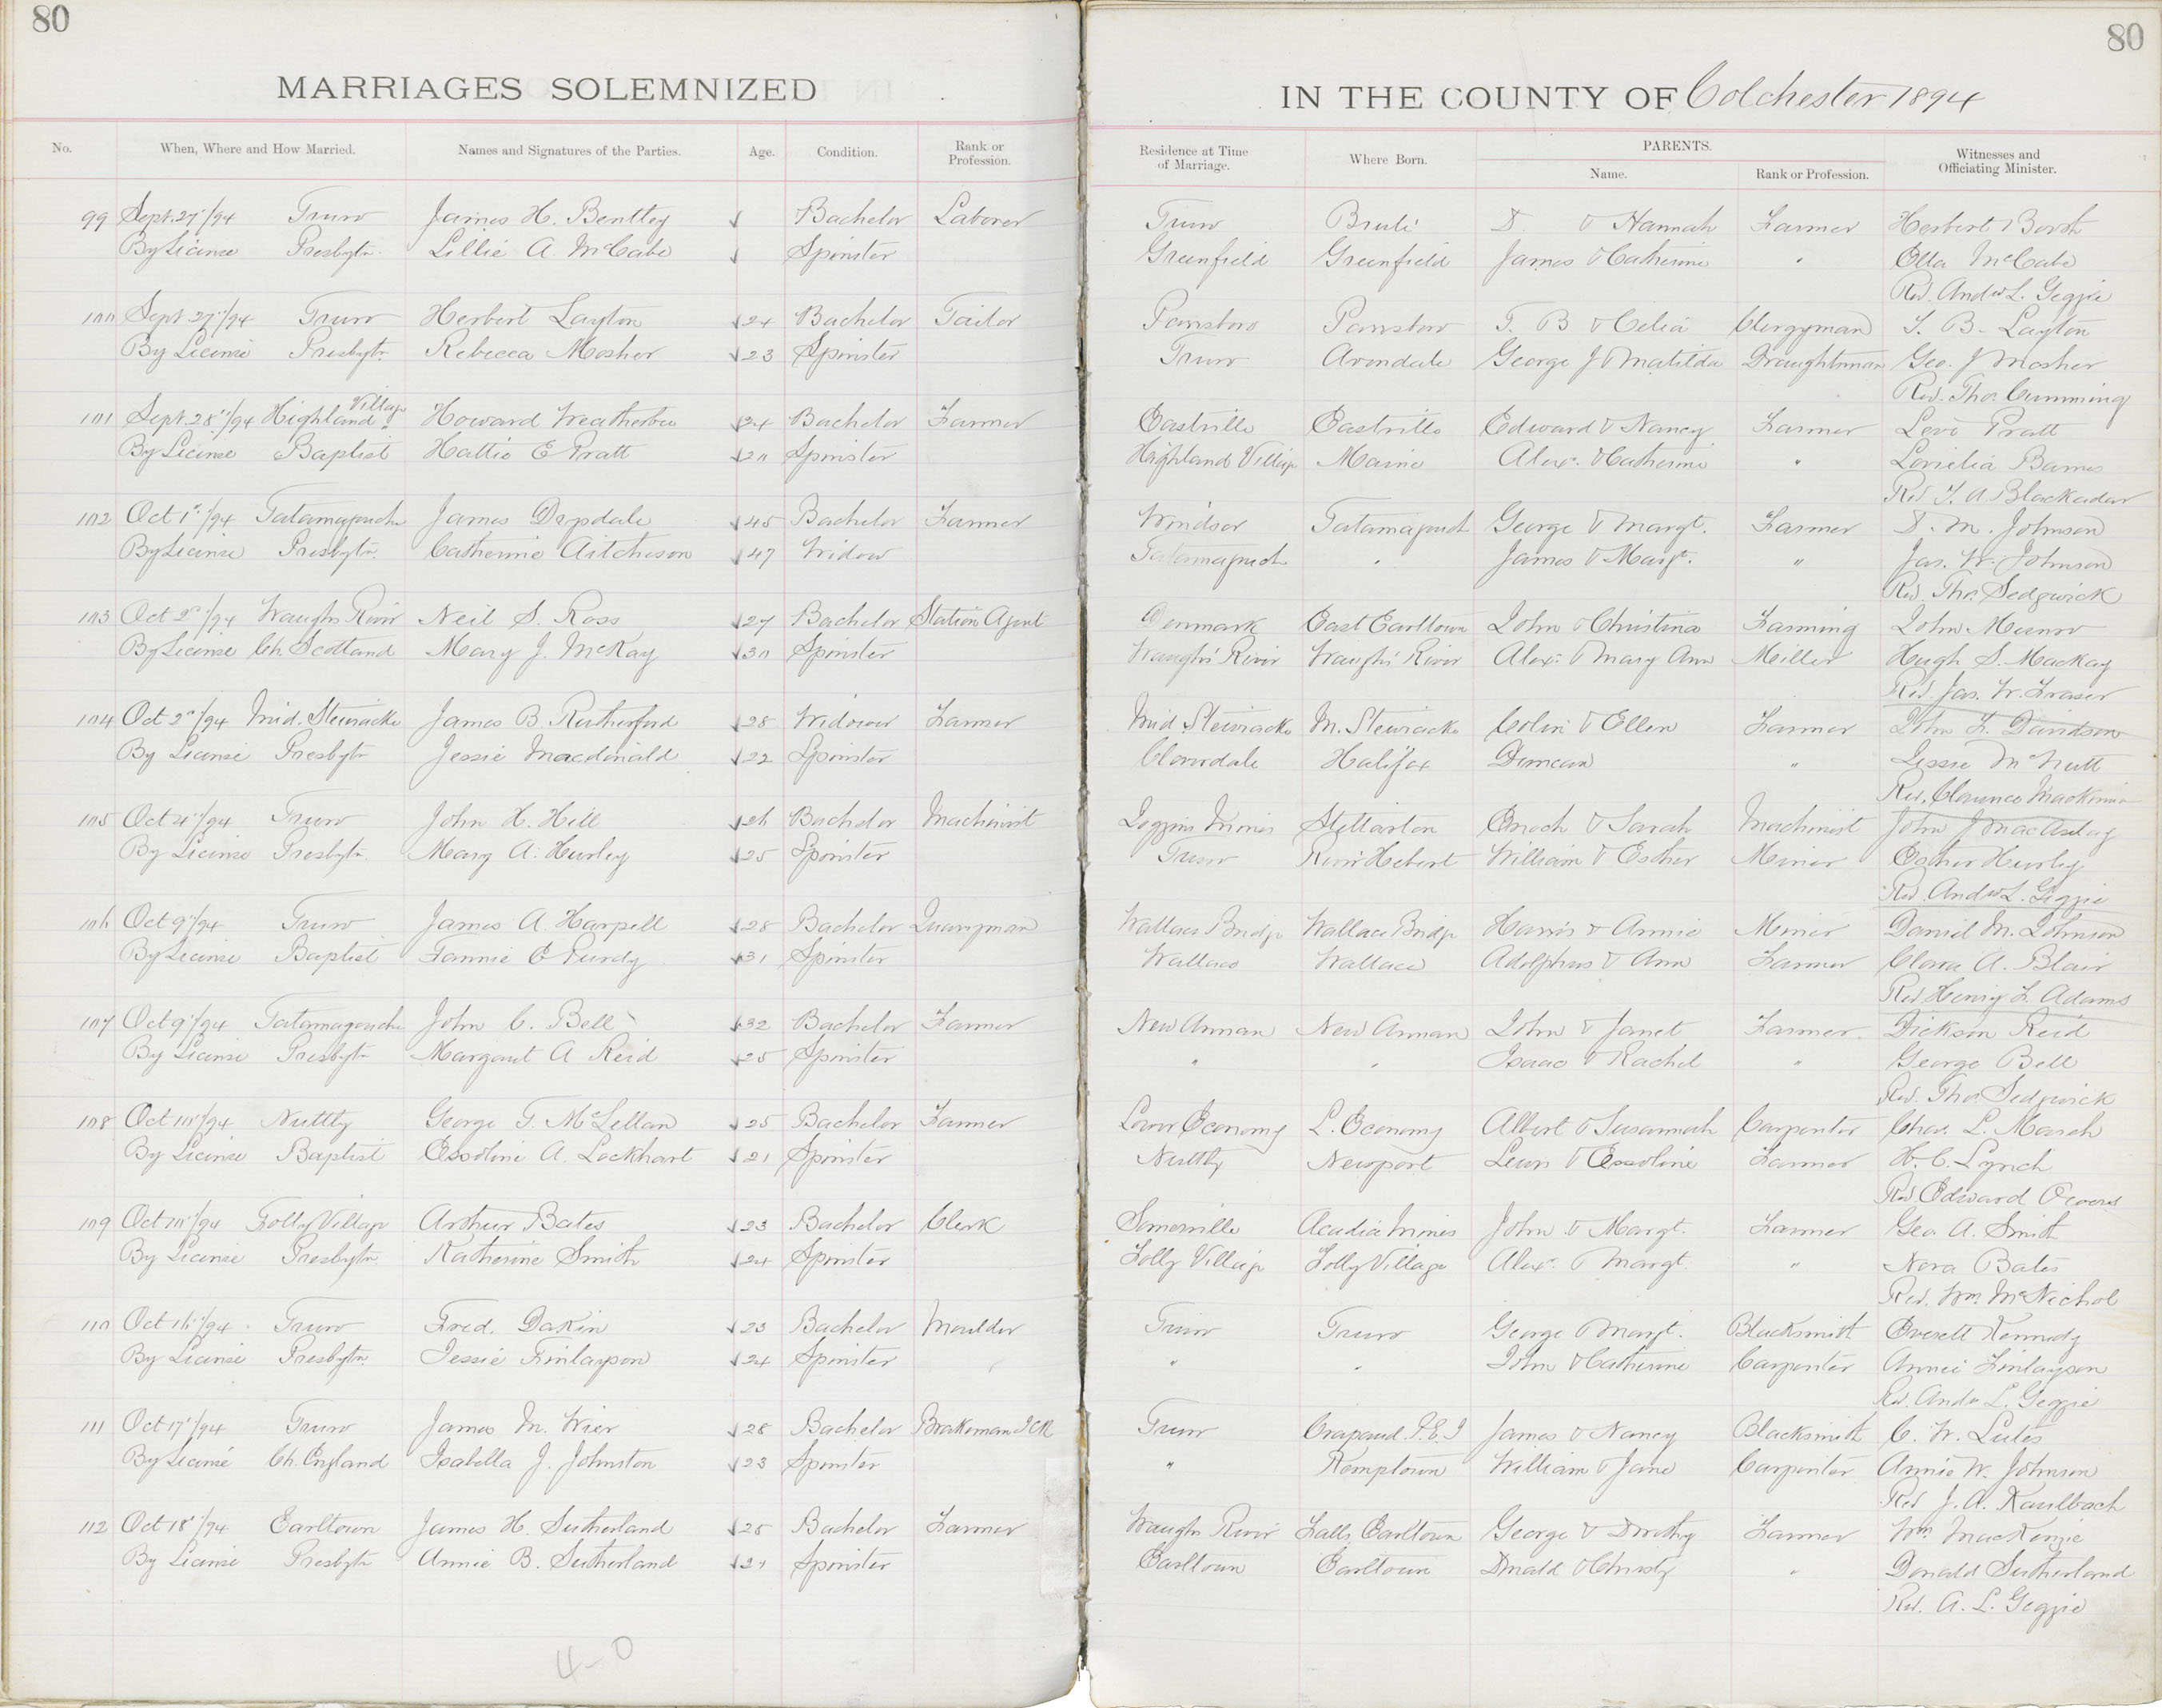 80
80
MARRIAGES SOLEMNIZED
IN THE COUNTY OF Colchester 1894
No. When, Where and How Married. Names and Signatures of the Parties. Age. Condition. Rank or Profession. Residence at Time of Marriage. Where Born. PARENTS. Name. Rank or Profession. Witnesses and Officiating Minister.
99 Sept. 27"/94 Truro James H. Bentley Bachelor Laborer Truro Brulé D & Hannah Farmer Herbert
By License Presbytn. Lillie A. McCabe Spinster Greenfield Greenfield James & Catherine " McCabe
Rev. Andw L. Geggie
100 Sept. 27"/94 Truro Herbert Layton 24 Bachelor Tailor Parrsboro Parrsboro T. B & Celia Clergyman T. B. Layton
By License Presbytn. Rebecca Mosher 23 Spinster Truro Avondale George J & Matilda Draughtsman Geo. J Mosher
Rev. Thos. Cumming
101 Sept. 28"/94 Highland Village Howard Weatherbee 24 Bachelor Farmer Eastville Eastville Edward & Nancy Farmer Levi Pratt
By License Baptist Hattie E Pratt 20 Spinster Highland Village Maine Alex. & Catherine " Barnes
Rev T. A Blackadar
102 Oct 1st/94 Tatamagouche James Drysdale 45 Bachelor Farmer Windsor Tatamagouch George & Margt. Farmer D. M. Johnson
By License Presbytn. Catherine Aitcheson 47 Widow Tatamagouch " James & Margt. " Jas. W. Johnson
Rev. Thos. Sedgwick
103 Oct 2d/94 Waughs River Neil S. Ross 27 Bachelor Station Agent Denmark East Earltown John & Christina Farming John Munro
By License Ch. Scotland Mary J. McKay 30 Spinster Waughs' River Waughs' River Alex. & Mary Ann Miller Hugh S. Mackay
Rev. Jas. W. Fraser
104 Oct 2d/94 Mid. Stewiacke James B. Rutherford 28 Widower Farmer Mid Stewiacke M. Stewiacke Colin & Ellen Farmer John F. Davidson
By License Presbytn Jessie Macdonald 22 Spinster Cloverdale Halifax Duncan " Jessie McNutt
Rev. Clarence Mackinnon
105 Oct 4"/94 Truro John H. Hill 26 Bachelor Machinist Joggins Mines Stellarton Enoch & Sarah Machinist John J MacAulay
By License Presbytn. Mary A. Hurley 25 Spinster Truro River Hebert William & Esther Miner Esther Hurley
Rev Andw L. Geggie
106 Oct 9"/94 Truro James A Harpell 28 Bachelor Quarryman Wallace Bridge Wallace Bridge Harris & Annie Miner Daniel M. Johnson
By License Baptist Fannie E Purdy 31 Spinster Wallace Wallace Adolphus & Ann Farmer Clara A. Blair
Rev Henry F. Adams
107 Oct 9"/94 Tatamagouche John C. Bell 32 Bachelor Farmer New Annan New Annan John & Janet Farmer Dickson Reid
By License Presbytn Margaret A Reid 25 Spinster " " Isaac & Rachel " George Bell
Rev. Thos Sedgwick
108 Oct 10"/94 Nuttby George T. McLellan 25 Bachelor Farmer Lower Economy L. Economy Albert & Susannah Carpenter Chas. L. Marsh
By License Baptist Essoline A. Lockhart 21 Spinster Nuttby Newport Lewis & Essoline Farmer H. C. Lynch
Rev Edward
109 Oct 10"/94 Folly Village Arthur Bates 23 Bachelor Clerk Somerville Acadia Mines John & Margt. Farmer Geo A. Smith
By License Presbytn Katherine Smith 24 Spinster Folly Village Folly Village Alex. & Margt. " Nora Bates
Rev. Wm. McNichol
110 Oct 16"/94 Truro Fred. Dakin 23 Bachelor Moulder Truro Truro George & Margt. Blacksmith Everett Kennedy
By License Presbytn Jessie Finlayson 24 Spinster " " John & Catherine Carpenter Annie Finlayson
Rev. Andw L. Geggie
111 Oct 17"/94 Truro James M. Wier 28 Bachelor Brakeman ICR Truro Crapaud. P.E.I James & Nancy Blacksmith C. W. Lutes
By License Ch. England Isabella J. Johnston 23 Spinster " Kemptown William & Jane Carpenter Annie W. Johnson
Rev J. A. Kaulbach
112 Oct 18"/94 Earltown James H. Sutherland 28 Bachelor Farmer Waughs River Falls, Earltown George & Dorothy Farmer Wm. MacKenzie
By License Presbytn Annie B. Sutherland 21 Spinster Earltown Earltown Donald & Christy " Donald Sutherland
Rev. A. L. Geggie
4-0